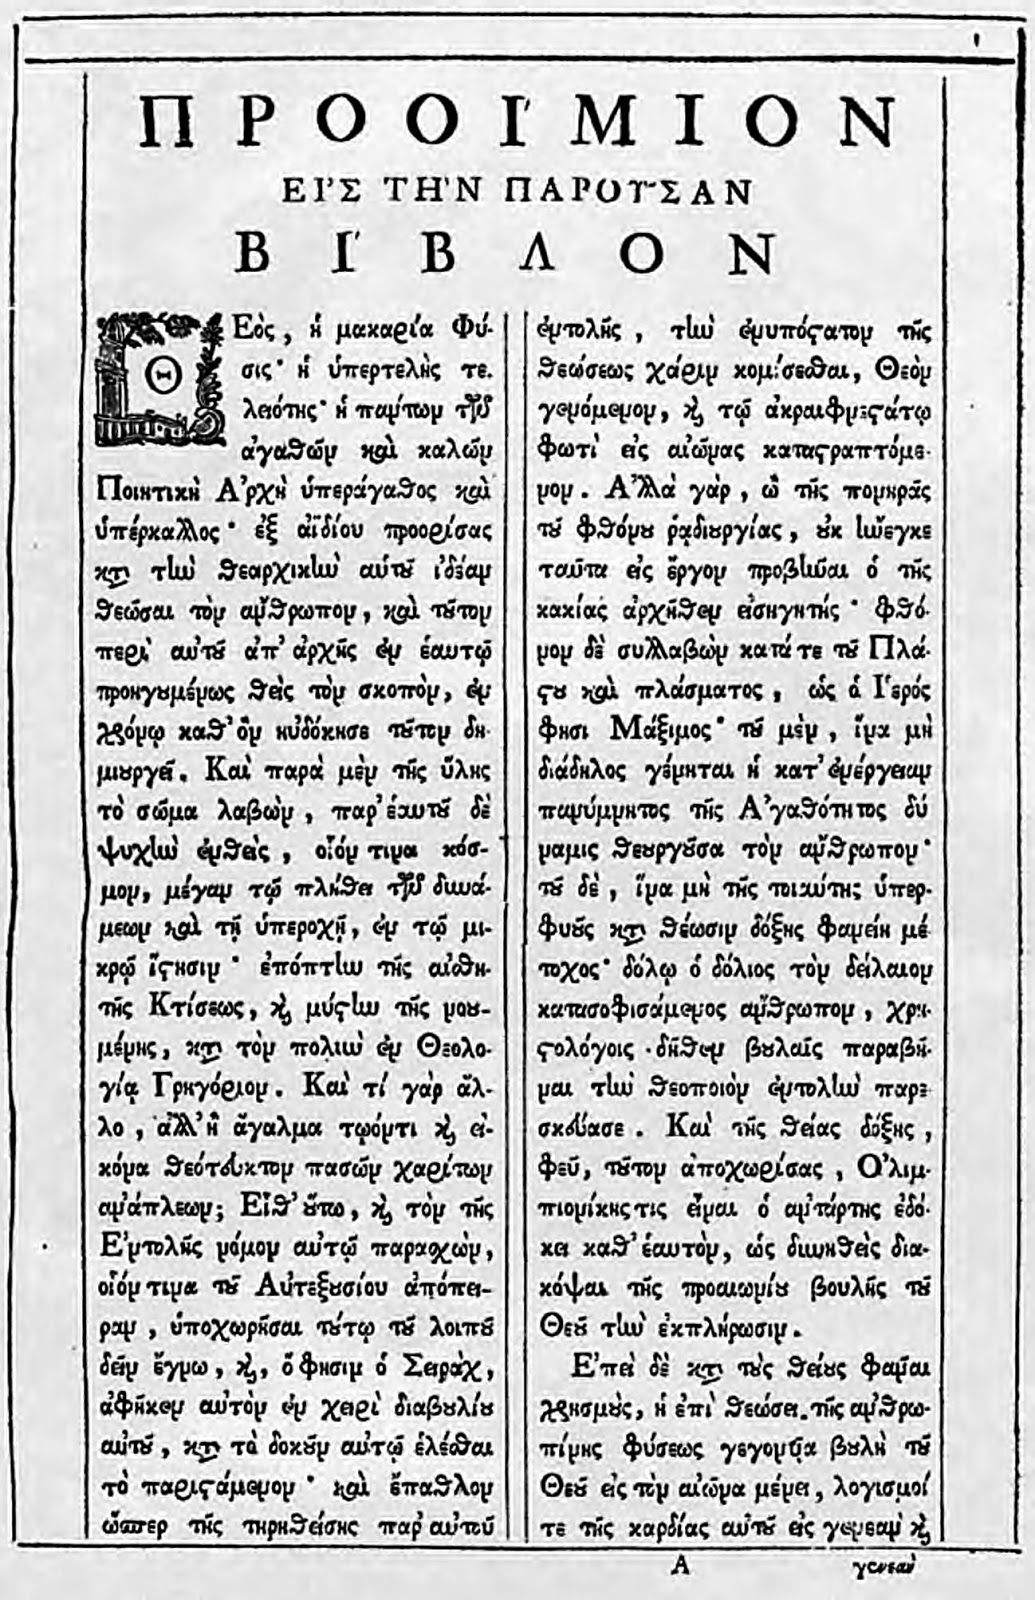 ΠΡΟΟΙ´ΜΙΟΝ
ΕΙ᾿Σ ΤΗ`Ν ΠΑΡΟΥ͂ΣΑΝ
ΒΙ´ΒΛΟΝ
ΘΕὸς, ἡ μακαρία Φύ-
σις· ἡ ὑπερτελὴς τε-
λειότης· ἡ πάντων τῶν
ἀγαθῶν καὶ καλῶν
Ποιητικὴ Ἀρχὴ ὑπεράγαθος καὶ
ὑπέρκαλλος· ἐξ ἀϊδίου προορίσας
κατὰ τὴν θεαρχικὴν αὐτοῦ ἰδέαν
θεῶσαι τὸν ἄνθρωπον, καὶ τοῦτον
περὶ αὐτοῦ ἀπ' ἀρχῆς ἐν ἑαυτῷ
προηγουμένως θεὶς τὸν σκοπὸν, ἐν
χρόνῳ καθ' ὃν ηὐδόκησε τοῦτον δη-
μιουργεῖ. Καὶ παρὰ μὲν τῆς ὕλης
τὸ σῶμα λαβὼν, παρ' ἑαυτοῦ δὲ
ψυχὴν ἐνθεὶς, οἷόν τινα κόσ-
μον, μέγαν τῷ πλήθει τῶν δυνά-
μεων καὶ τῇ ὑπεροχῇ, ἐν τῷ μι-
κρῷ ἵστησιν· ἐπόπτην τῆς αἰσθη-
τῆς Κτίσεως, καὶ μύστην τῆς νου-
μένης, κατὰ τὸν πολὺν ἐν Θεολο-
γίᾳ Γρηγόριον. Καὶ τί γὰρ ἄλ-
λο, ἀλλ' ἢ ἄγαλμα τῳόντι καὶ εἰ-
κόνα θεότευκτον πασῶν χαρίτων
ἀνάπλεων; Εἶθ' οὕτω, καὶ τὸν τῆς
Ἐντολῆς νόμον αὐτῷ παρασχὼν,
οἷόν τινα τοῦ Αὐτεξουσίου ἀπόπει-
ραν, ὑποχωρῆσαι τούτῳ τοῦ λοιποῦ
δεῖν ἔγνω, καὶ, ὅ φησιν ὁ Σειρὰχ,
ἀφῆκεν αὐτὸν ἐν χειρὶ διαβουλίου
αὐτοῦ, κατὰ τὸ δοκοῦν αὐτῷ ἑλέσθαι
τὸ παριστάμενον· καὶ ἔπαθλον
ὥσπερ τῆς τηρηθείσης παρ' αὐτοῦ
ἐντολῆς, τὴν ἐνυπόστατον τῆς
θεώσεως χάριν κομίσεσθαι, Θεὸν
γενόμενον, καὶ τῷ ἀκραιφνεστάτῳ
φωτὶ εἰς αἰῶνας καταστραπτόμε-
νον. Ἀλλὰ γὰρ, ὢ τῆς πονηρᾶς
τοῦ φθόνου ῥᾳδιουργίας, οὐκ ἤνεγκε
ταῦτα εἰς ἔργον προβῆναι ὁ τῆς
κακίας ἀρχῆθεν εἰσηγητής· φθό-
νον δὲ συλλαβὼν κατά τε τοῦ Πλά-
στου καὶ πλάσματος, ὡς ὁ Ἱερός
φησι Μάξιμος· τοῦ μὲν, ἵνα μὴ
διάδηλος γένηται ἡ κατ' ἐνέργειαν
πανύμνητος τῆς Ἀγαθότητος δύ
ναμις θεουργοῦσα τὸν ἄνθρωπον·
τοῦ δὲ, ἵνα μὴ τῆς τοιαύτης ὑπερ-
φυοῦς κατὰ θέωσιν δόξης φανείη μέ-
τοχος· δόλῳ ὁ δόλιος τὸν δείλαιον
κατασοφισάμενος ἄνθρωπον, χρη-
στολόγοις δῆθεν βουλαῖς παραβῆ-
ναι τὴν θεοποιὸν ἐντολὴν παρε-
σκεύασε. Καὶ τῆς θείας δόξης,
φεῦ, τοῦτον ἀποχωρίσας, Ὀλυμ-
πιονίκης τις εἶναι ὁ ἀντάρτης ἐδό-
κει καθ' ἑαυτὸν, ὡς δυνηθεὶς δια-
κόψαι τῆς προαιωνίου βουλῆς τοῦ
Θεοῦ τὴν ἐκπλήρωσιν.
Ἐπεὶ δὲ κατὰ τοὺς θείους φάναι
χρησμοὺς, ἡ ἐπὶ θεώσει τῆς ἀνθρω-
πίνης φύσεως γεγονυῖα βουλὴ τοῦ
Θεοῦ εἰς τὸν αἰῶνα μένει, λογισμοί
τε τῆς καρδίας αὐτοῦ εἰς γενεὰν καὶ
Α γενεὰν